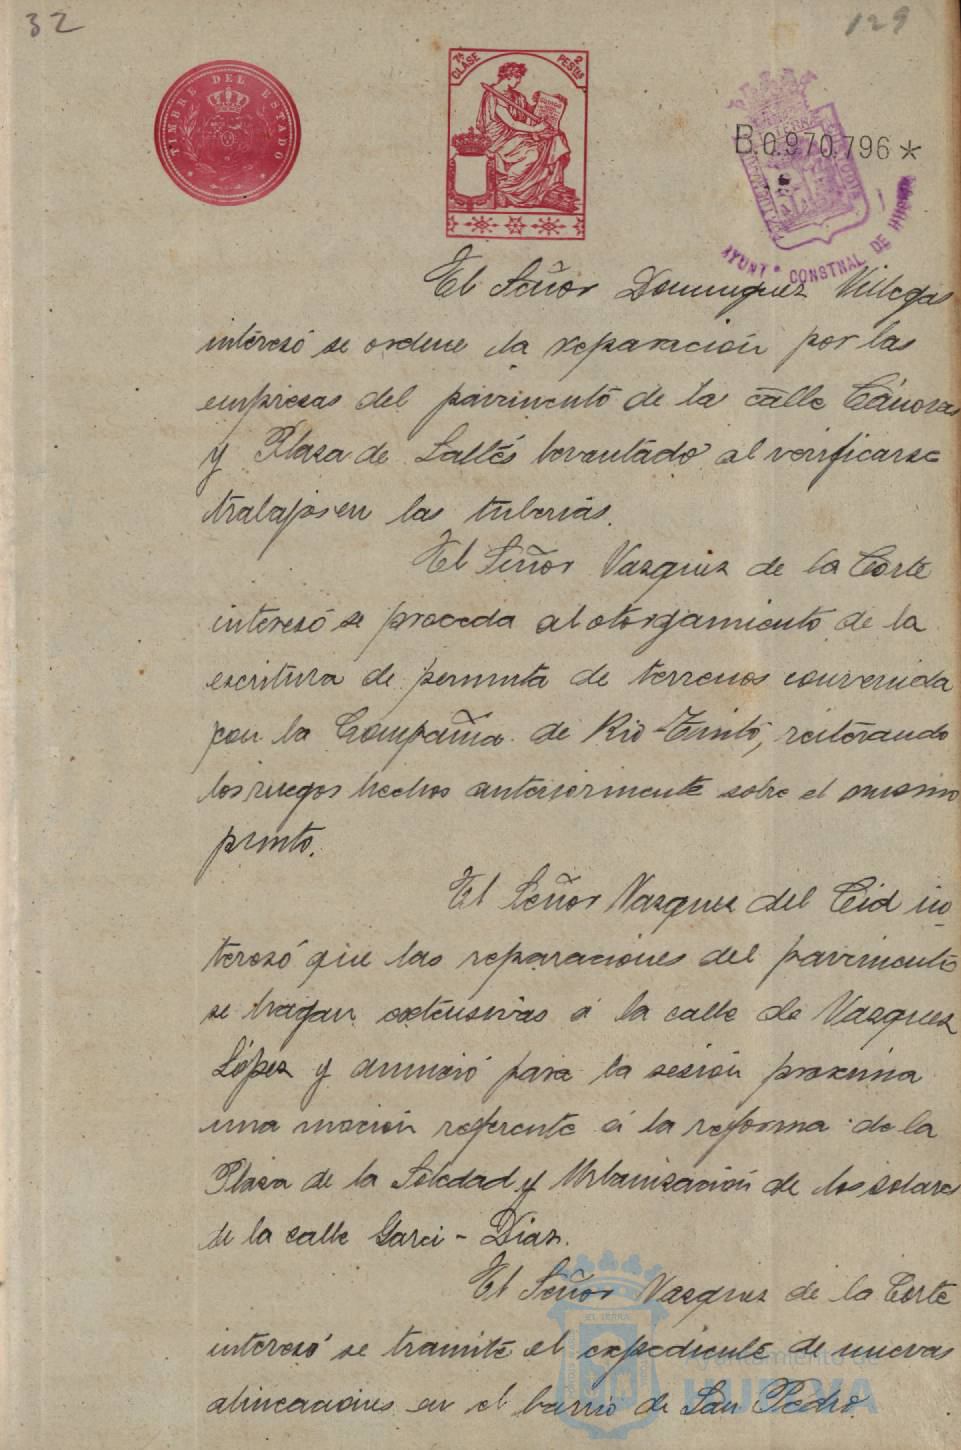 32
129
TIMBRE DEL ESTADO
7ª CLASE
2 PESTAS
B.0.970.796*
AYUNTº CONSTNAL DE HUELVA
El Señor Dominguez Villegas
interesó se ordene la reparación por las
empresas del pavimento de la calle Cánovas
y Plaza de Saltés levantado al verificarse
trabajos en las tuberias.
El Señor Vazquez de la Corte
interesó se proceda al otorgamiento de la
escritura de permuta de terrenos convenida
con la Compañia de Rio-Tinto, reiterando
los ruegos hechos anteriormente sobre el mismo
punto.
El Señor Vazquez del Cid in-
teresó que las reparaciones del pavimento
se hagan extensivas á la calle de Vazquez
López y anunció para la sesión proxima
una moción referente á la reforma de la
Plaza de la Soledad y Urbanización de los solares
de la calle Garci-Diaz.
El Señor Vazquez de la Corte
interesó se tramite el expediente de nuevas
alineaciones en el barrio de San Pedro.
Ayuntamiento de
HUELVA